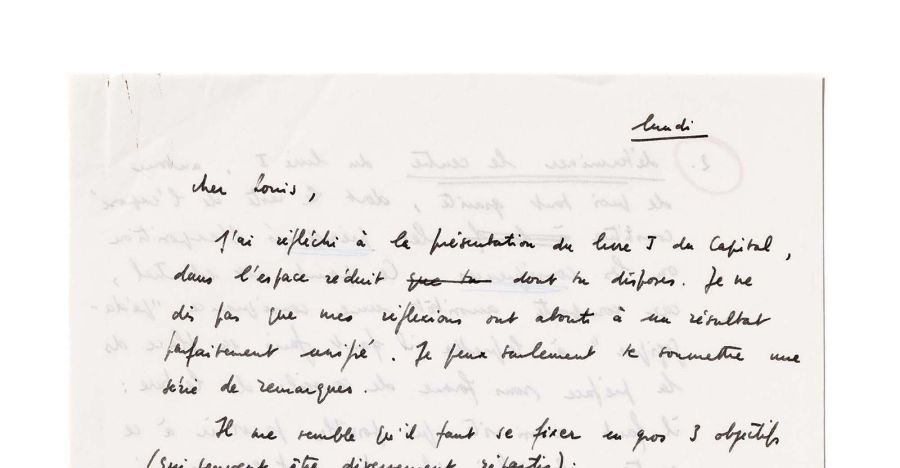 lundi
cher Louis,
J'ai réfléchi à la présentation du livre I du Capital,
dans l'espace réduit que tu dont tu disposes. Je ne
dis pas que mes réflexions ont abouti à un résultat
parfaitement unifié. Je peux seulement te soumettre une
série de remarques.
Il me semble qu'il faut se fixer en gros 3 objectifs
(qui peuvent être diversement répartis):